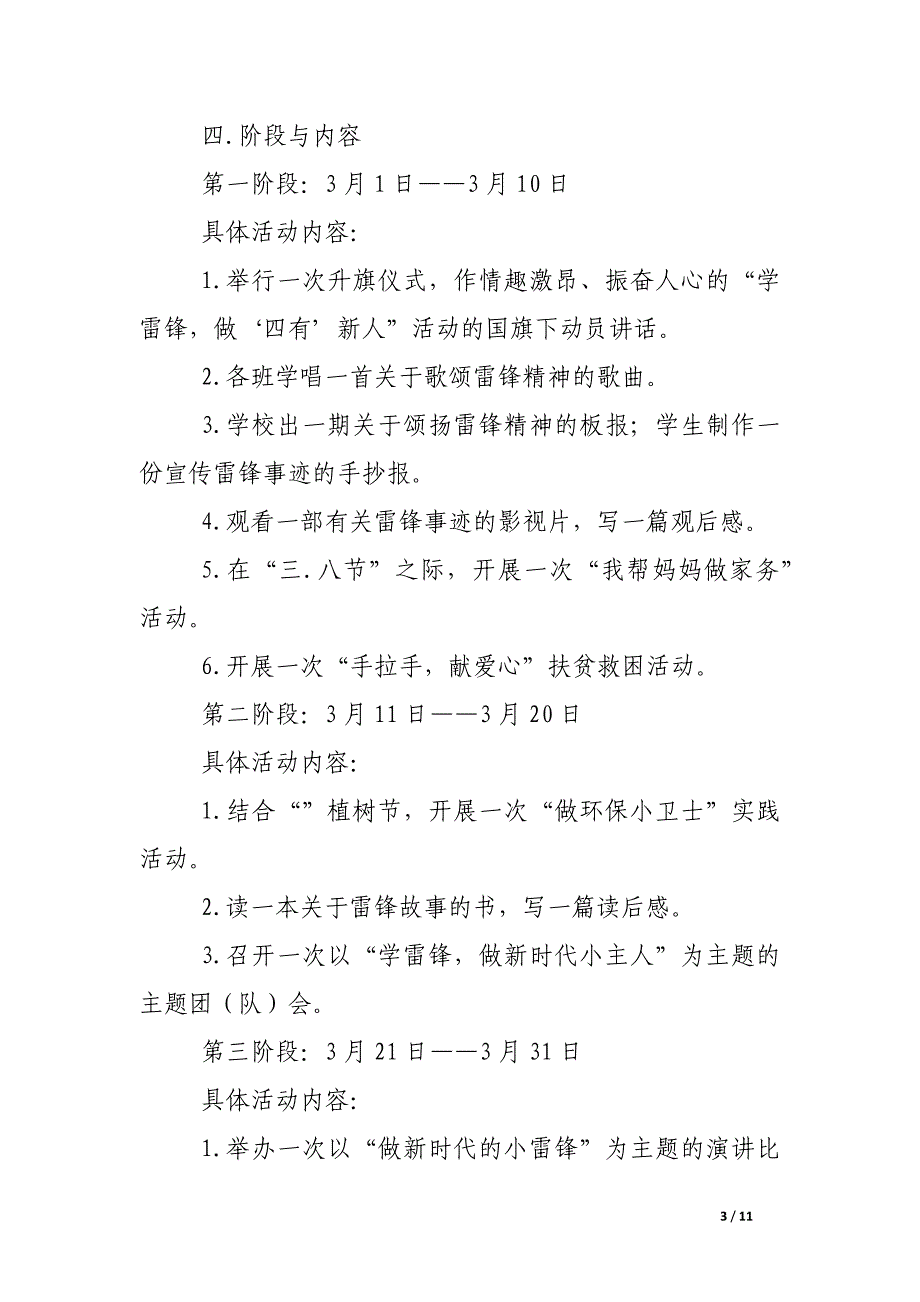 四.阶段与内容
第一阶段：3月1日——3月10日
具体活动内容：
1.举行一次升旗仪式，作情趣激昂、振奋人心的“学
雷锋，做‘四有’新人”活动的国旗下动员讲话。
2.各班学唱一首关于歌颂雷锋精神的歌曲。
3.学校出一期关于颂扬雷锋精神的板报；学生制作一
份宣传雷锋事迹的手抄报。
4.观看一部有关雷锋事迹的影视片，写一篇观后感。
5.在“三.八节”之际，开展一次“我帮妈妈做家务”
活动。
6.开展一次“手拉手，献爱心”扶贫救困活动。
第二阶段：3月11日——3月20日
具体活动内容：
1.结合“”植树节，开展一次“做环保小卫士”实践
活动。
2.读一本关于雷锋故事的书，写一篇读后感。
3.召开一次以“学雷锋，做新时代小主人”为主题的
主题团（队）会。
第三阶段：3月21日——3月31日
具体活动内容：
1.举办一次以“做新时代的小雷锋”为主题的演讲比
3 / 11